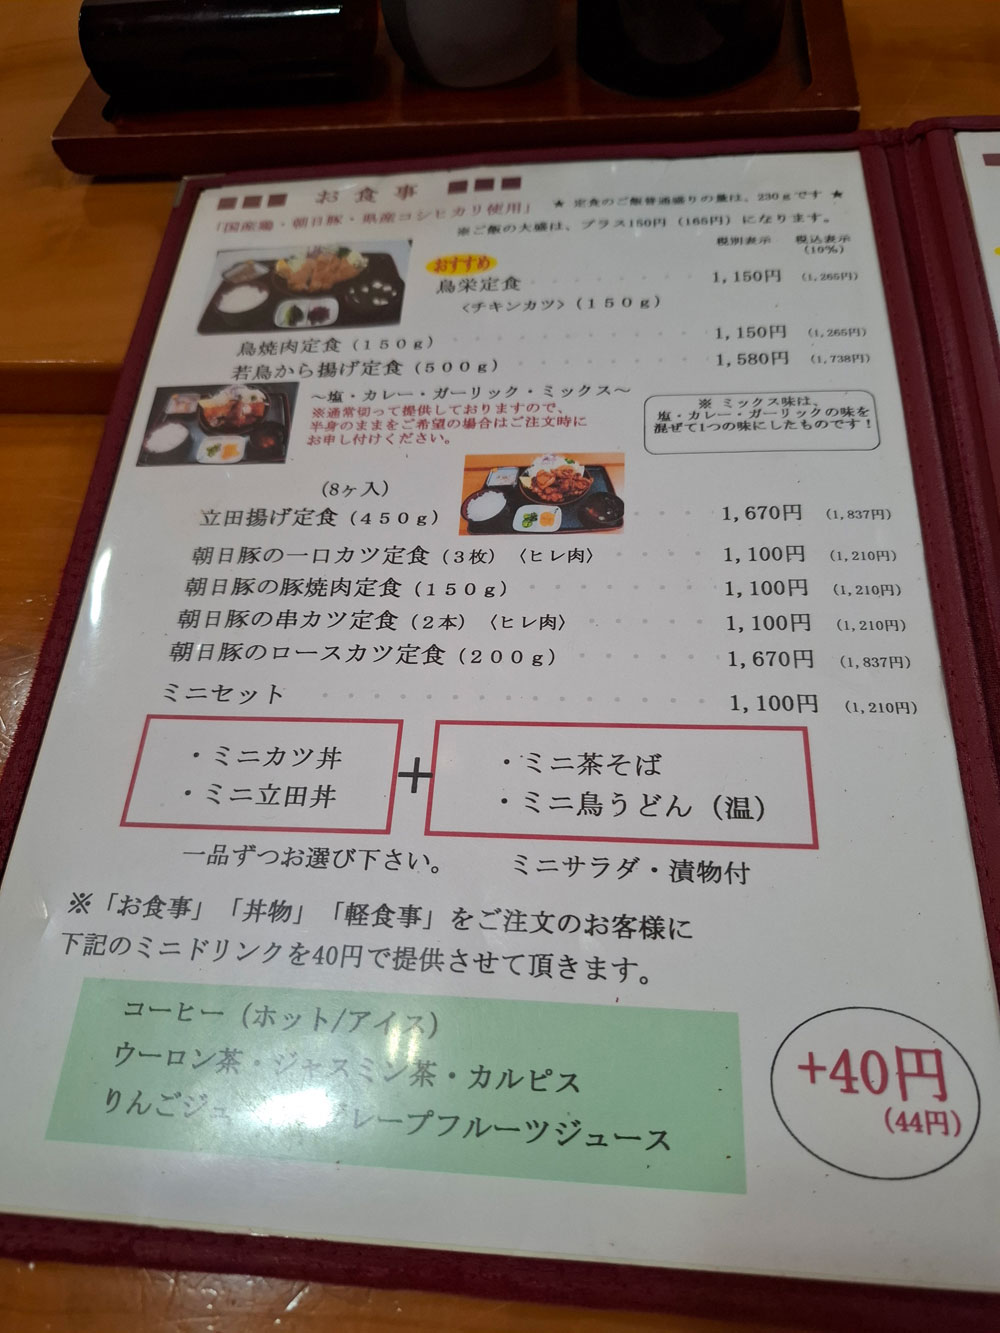 ■■■ お食事 ■■■
「国産鶏・朝日豚・県産コシヒカリ使用」
★ 定食のご飯普通盛りの量は、230gです ★
※ご飯の大盛は、プラス150円（165円）になります。
税別表示 税込表示
(10%)
おすすめ
鳥栄定食 1,150円 (1,265円)
〈チキンカツ〉（150g）
鳥焼肉定食（150g） 1,150円 (1,265円)
若鳥から揚げ定食（500g） 1,580円 (1,738円)
～塩・カレー・ガーリック・ミックス～
※通常切って提供しておりますので、
半身のままをご希望の場合はご注文時に
お申し付けください。
※ ミックス味は、
塩・カレー・ガーリックの味を
混ぜて1つの味にしたものです！
（8ヶ入）
立田揚げ定食（450g） 1,670円 (1,837円)
朝日豚の一口カツ定食（3枚）〈ヒレ肉〉 1,100円 (1,210円)
朝日豚の豚焼肉定食（150g） 1,100円 (1,210円)
朝日豚の串カツ定食（2本）〈ヒレ肉〉 1,100円 (1,210円)
朝日豚のロースカツ定食（200g） 1,670円 (1,837円)
ミニセット 1,100円 (1,210円)
・ミニカツ丼
・ミニ立田丼
+
・ミニ茶そば
・ミニ鳥うどん（温）
一品ずつお選び下さい。 ミニサラダ・漬物付
※「お食事」「丼物」「軽食事」をご注文のお客様に
下記のミニドリンクを40円で提供させて頂きます。
コーヒー（ホット/アイス）
ウーロン茶・ジャスミン茶・カルピス
りんごジュ レープフルーツジュース
+40円
(44円)